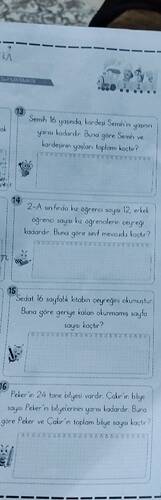 13
Semih 16 yaşında, kardeşi Semih'in yaşının
yarısı kadardır. Buna göre Semih ve
kardeşinin yaşları toplamı kaçtır?
14
2-A sınıfında kız öğrenci sayısı 12, erkek
öğrenci sayısı kız öğrencilerin çeyreği
kadardır. Buna göre sınıf mevcudu kaçtır?
15
Sedat 16 sayfalık kitabın çeyreğini okumuştur.
Buna göre geriye kalan okunmamış sayfa
sayısı kaçtır?
16
Peker'in 24 tane bilyesi vardır. Çakır'ın bilye
sayısı Peker'in bilyelerinin yarısı kadardır. Buna
göre Peker ve Çakır'ın toplam bilye sayısı kaçtır?